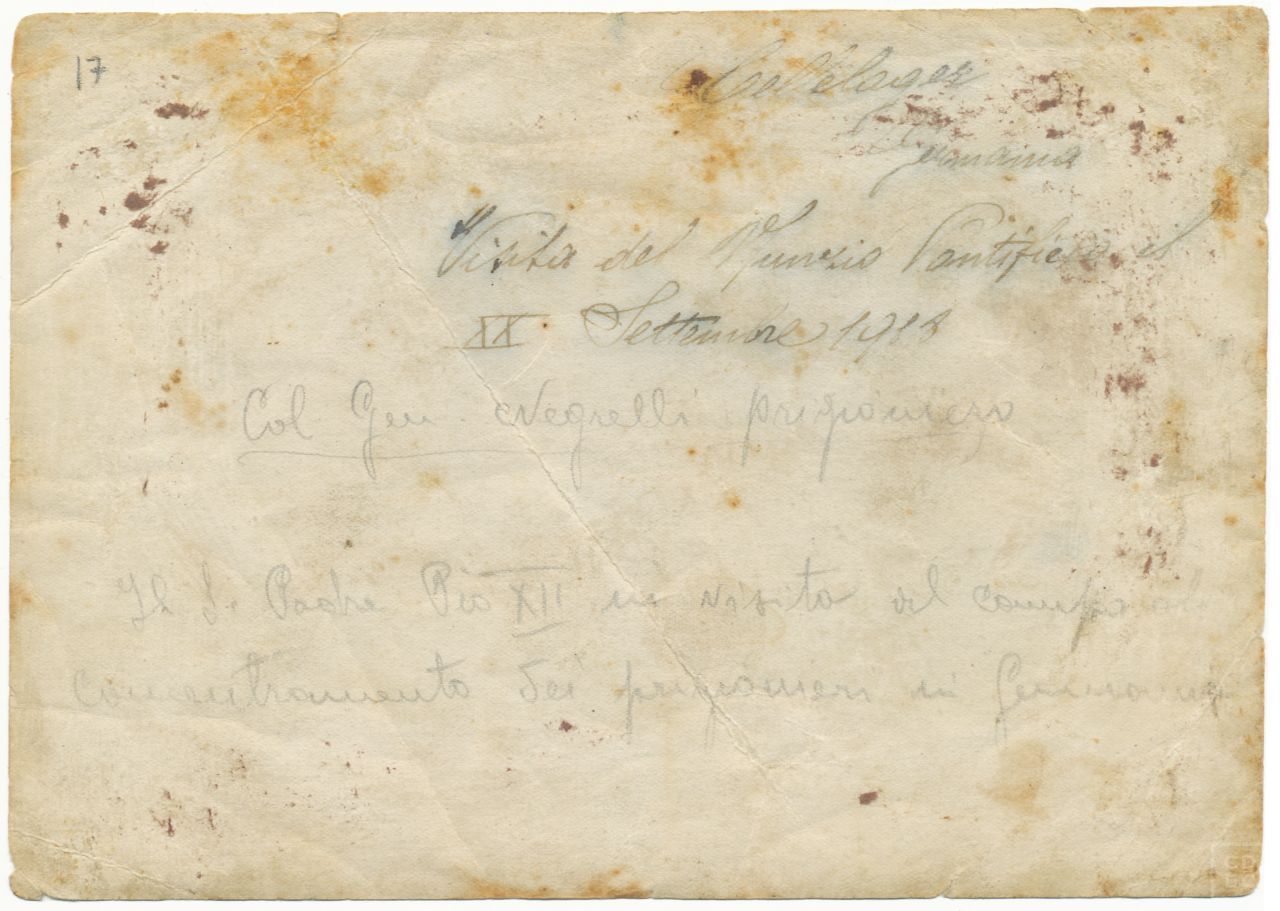 17
Cellelager
Germania
Visita del Nunzio Pontificio il
XX Settembre 1918
Col Gen Negrelli prigioniero
Il S. Padre Pio XII in visita al campo di
concentramento dei prigionieri in Germania